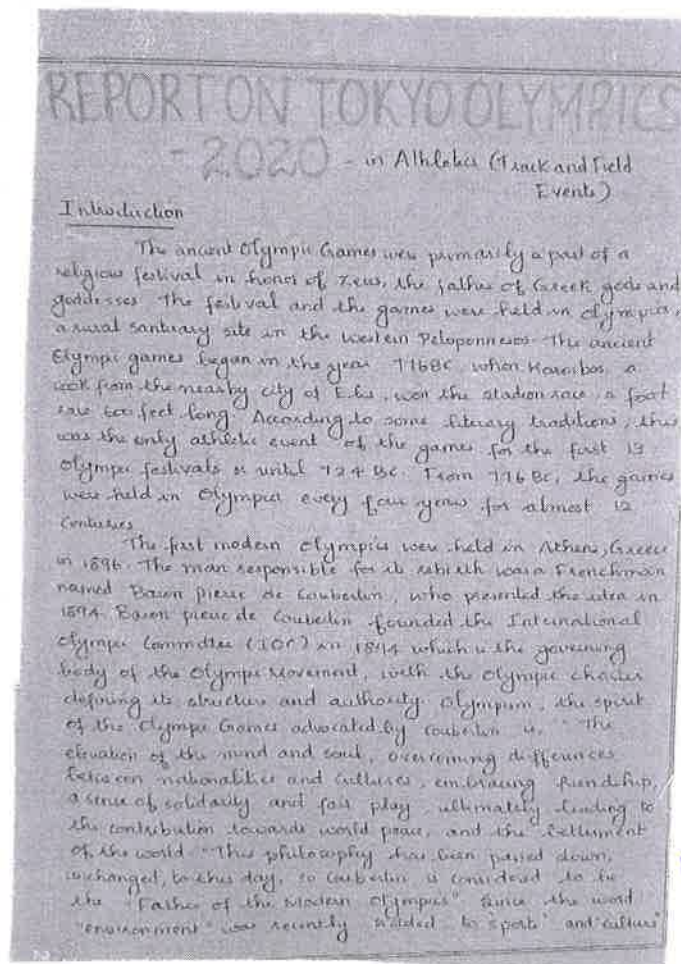 REPORT ON TOKYO OLYMPICS
- 2020 - in Athletics (Track and Field
Events)
Introduction
The ancient Olympic Games were primarily a part of a
religious festival in honor of Zeus, the father of Greek gods and
goddesses. The festival and the games were held in Olympia,
a rural santuary site in the western Peloponnesos. The ancient
Olympic games began in the year 776BC, when Koroibos, a
cook from the nearby city of Elis, won the stadion race, a foot
race 600 feet long. According to some literary traditions, this
was the only athletic event of the games for the first 13
Olympic festivals or until 724 BC. From 776 BC, the games
were held in Olympia every four years for almost 12
centuries.
The first modern Olympics were held in Athens, Greece
in 1896. The man responsible for its rebirth was a Frenchman
named Baron pierre de Coubertin, who presented the idea in
1894. Baron pierre de Coubertin founded the International
Olympic Committee (IOC) in 1894 which is the governing
body of the Olympic Movement, with the Olympic charter
defining its structure and authority. Olympism, the spirit
of the Olympic Games advocated by Coubertin is, "The
elevation of the mind and soul, overcoming differences
between nationalities and cultures, embracing friendship,
a sense of solidarity and fair play, ultimately leading to
the contribution towards world peace, and the betterment
of the world." This philosophy has been passed down,
unchanged, to this day, so Coubertin is considered to be
the "Father of the Modern Olympics" Since the word
"environment" was recently added to "sports" and "culture"